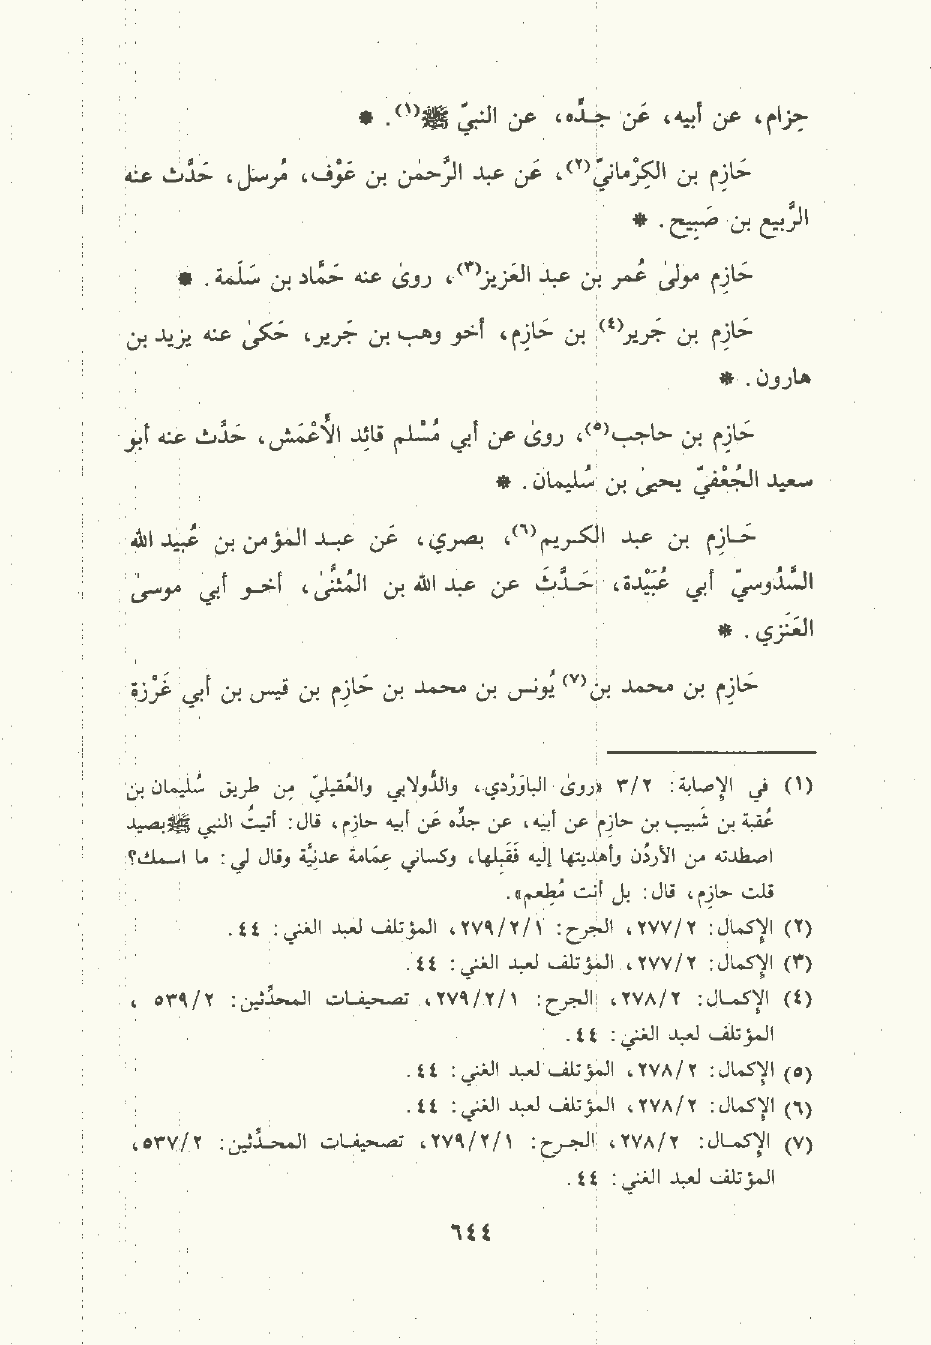 حِزام، عن أبيه، عَن جدِّه، عن النبيّ ﷺ(١). *
حَازِم بن الكِرْمانيّ(٢)، عَن عبد الرَّحمٰن بن عَوْف، مُرسل، حَدَّث عنه
الرَّبيع بن صَبِيح. *
حَازِم مولىٰ عُمر بن عبد العَزيز(٣)، روىٰ عنه حَمَّاد بن سَلَمة. *
حَازِم بن جَرير(٤) بن حَازِم، أخو وهب بن جَرير، حَكىٰ عنه يزيد بن
هارون. *
حَازِم بن حاجب(٥)، روىٰ عن أبي مُسْلم قائِد الأَعْمَش، حَدَّث عنه أبو
سعيد الجُعْفيّ يحيىٰ بن سُليمان. *
حَازِم بن عبد الكريم(٦)، بصري، عَن عبد المؤمن بن عُبيد الله
السَّدُوسيّ أبي عُبَيْدة، حَدَّثَ عن عبد الله بن المُثنَّىٰ، أخو أبي موسىٰ
العَنَزي. *
حَازِم بن محمد بن(٧) يُونس بن محمد بن حَازِم بن قيس بن أبي غَرْزة
(١) في الإصابة: ٣/٢ «روىٰ الباوَرْدي، والدُّولابي والعُقيليّ مِن طريق سُليمان بن
عُقبة بن شَبيب بن حازِم عن أبيه، عن جدِّه عَن أبيه حازِم، قال: أتيتُ النبي ﷺ بصيد
اصطدته من الأردُن وأهديتها إليه فَقَبِلها، وكساني عِمَامة عدنيَّة وقال لي: ما اسمك؟
قلت حازِم، قال: بل أنت مُطعِم».
(٢) الإكمال: ٢٧٧/٢، الجرح: ٢٧٩/٢/١، المؤتلف لعبد الغني: ٤٤.
(٣) الإكمال: ٢٧٧/٢، المؤتلف لعبد الغني: ٤٤.
(٤) الإكمال: ٢٧٨/٢، الجرح: ٢٧٩/٢/١، تصحيفات المحدِّثين: ٥٣٩/٢ ،
المؤتلف لعبد الغني: ٤٤.
(٥) الإكمال: ٢٧٨/٢، المؤتلف لعبد الغني: ٤٤.
(٦) الإكمال: ٢٧٨/٢، المؤتلف لعبد الغني: ٤٤.
(٧) الإكمال: ٢٧٨/٢، الجرح: ٢٧٩/٢/١، تصحيفات المحدِّثين: ٥٣٧/٢،
المؤتلف لعبد الغني: ٤٤.
٦٤٤